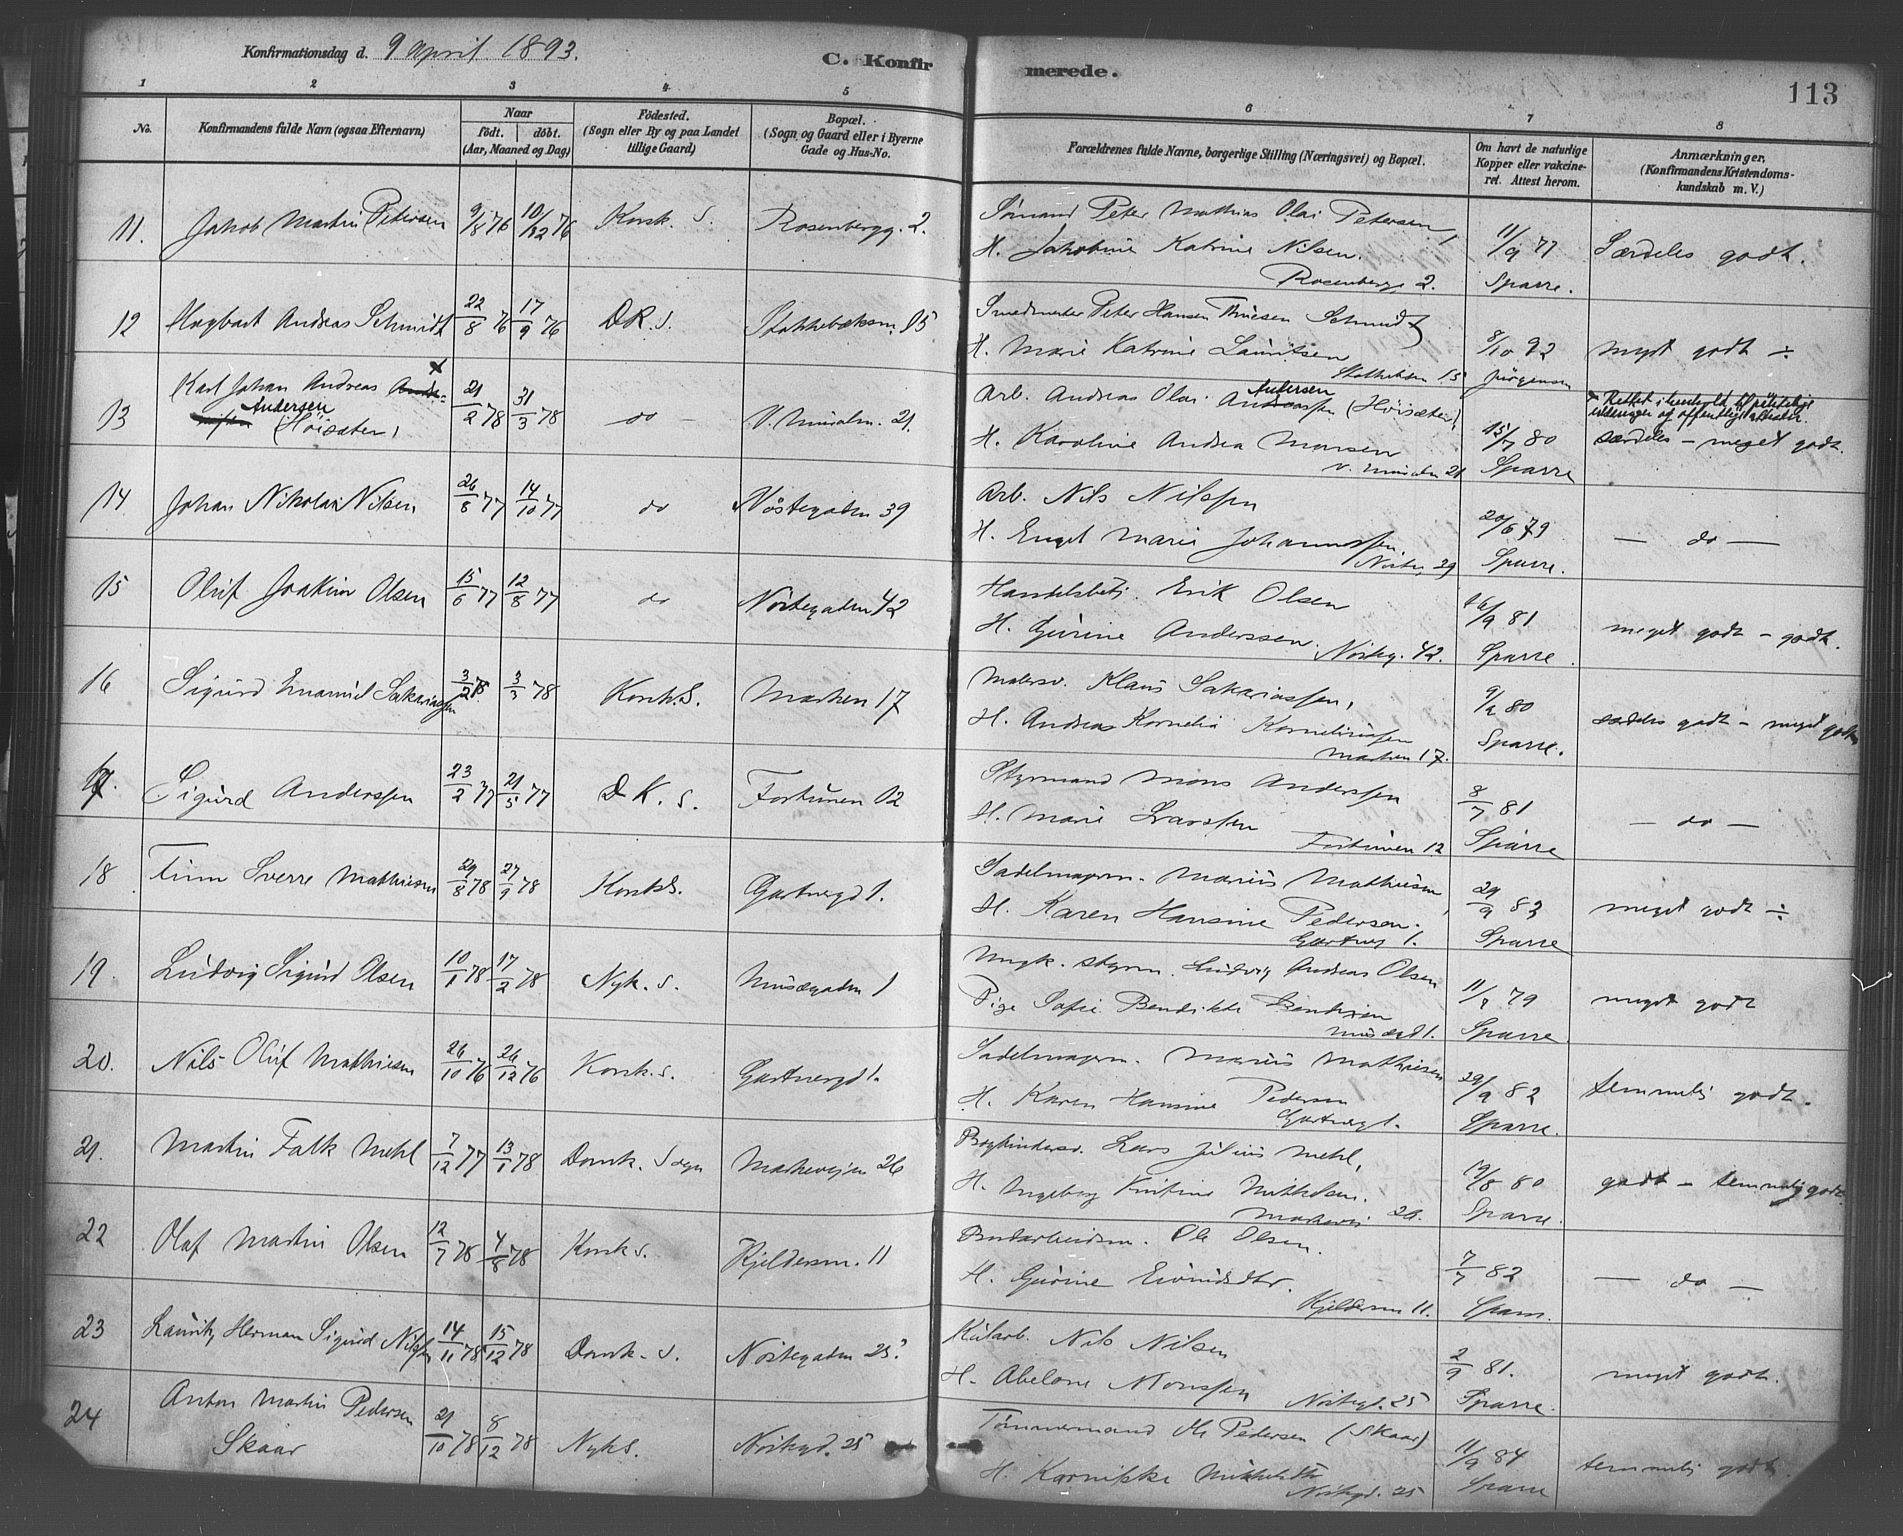 Konfirmationsdag d. 9 April 1893.
C. Konfirmerede.
113
1 2 3 4 5 6 7 8
No.
Konfirmandens fulde Navn (ogsaa Efternavn)
Naar
födt. döbt.
(Aar, Maaned og Dag)
Födested.
(Sogn eller By og paa Landet
tillige Gaard)
Bopæl.
(Sogn og Gaard eller i Byerne
Gade og Hus-No.
Forældrenes fulde Navne, borgerlige Stilling (Næringsvei) og Bopæl.
Om havt de naturlige
Kopper eller vakcine-
ret. Attest herom.
Anmærkninger,
(Konfirmandens Kristendoms-
kundskab m. V.)
11. Jakob Martin Petersen 9/8 76 10/12 76 Korsk. S. Rosenbergg. 2. Sömand Peter Mathias Olai Petersen, 11/9 77 Særdeles godt.
H. Jakobine Katrine Nilsen.
Rosenbergg 2. Sparre.
12 Hagbart Andreas Schmidt 22/8 76 17/9 76 DK. S. Stakkebæksm. 15 Smedmester Peter Hansen Thuesen Schmidt 8/10 92 myt godt ÷
H. Marie Katrine Lauritsen
15 Jürgensen
13 Karl Johan Andreas
Andersen (Höisæter) 21/2 78 31/3 78 do V. Muralm. 21. Arb. Andreas Olai Andersen (Höisæter) 15/7 80 særdeles - meget godt.
H. Karoline Andrea Monsen
V. Muralm 21 Sparre
14 Johan Nikolai Nilsen 26/8 77 14/10 77 do Nöstegaten 39 Arb. Nils Nilssen 20/6 79 — do —
H. Engel Marie Johannessen
Sparre.
15 Oluf Joakim Olsen 15/6 77 12/8 77 do Nöstegaten 42 Handelsbetj. Erik Olsen 16/9 81 meget godt - godt.
H. Gurine Anderssen. Nösteg. 42. Sparre.
16 Sigurd Emanuel Sakariassen 3/3 78 Korsk.S. Marken 17 Malersv. Klaus Sakariassen, 9/2 80 godt - meget godt
H. Andrea Kornelia Korneliussen
Marken 17. Sparre.
17. Sigurd Anderssen 23/2 77 21/5 77 D.K. S. Fortunen 12 Styrmand Mons Anderssen 8/7 81 — do —
H. Marie Larssen Fortunen 12 Sparre
18 Finn Sverre Mathiesen 29/8 78 27/9 78 Korsk S. Gartnergd 1. Sadelmagerm. Marius Mathiesen, 29/9 82 meget godt ÷
H. Karen Hansine Pedersen.
1. Sparre
19. Ludvig Sigurd Olsen 10/1 78 17/2 78 Nyk. S. Musegaten 1 Ungk. Styrm. Ludvig Andreas Olsen 11/7 79 meget godt
Pige Sofie Bendikte Bendixen
1. Sparre
20. Nils Oluf Mathiesen 26/10 76 26/12 76 Korsk. S. Gartnergd 1. Sadelmagerm. Marius Mathiesen 29/9 82 temmelig godt.
H. Karen Hansine Pedersen
1. Sparre.
21. Martin Falk Mehl 7/12 77 13/1 78 Domk. Sogn Markeveien 26 Bogbindersv. Lars Julius Mehl, 19/8 80 godt - temmelig godt
H. Ingeborg Kristine Mikkelsen.
Markevei 26. Sparre.
22 Olaf Martin Olsen 12/7 78 4/8 78 Korsk S. Kjeldersm. 11 Ole Olsen. 7/7 82 — do —
H. Gurine Eivindsdtr.
Kjeldersm 11. Sparre.
23 Lauritz Herman Sigurd Nilssen 14/11 78 15/12 78 Domk. S. Nöstegaten 25. Kularb. Nils Nilsen 2/9 81. meget godt.
H. Abelone Monssen Nöstegd. 25 Sparre.
24 Anton Martin Pedersen
Skaar 21/10 78 8/12 78 Nyk S. Nöstegd. 25 Tömmermand Ole Pedersen (Skaar) 11/9 84 temmelig godt.
H. Karnikke Mikkelsdtr
Nöstegd. 25 Sparre